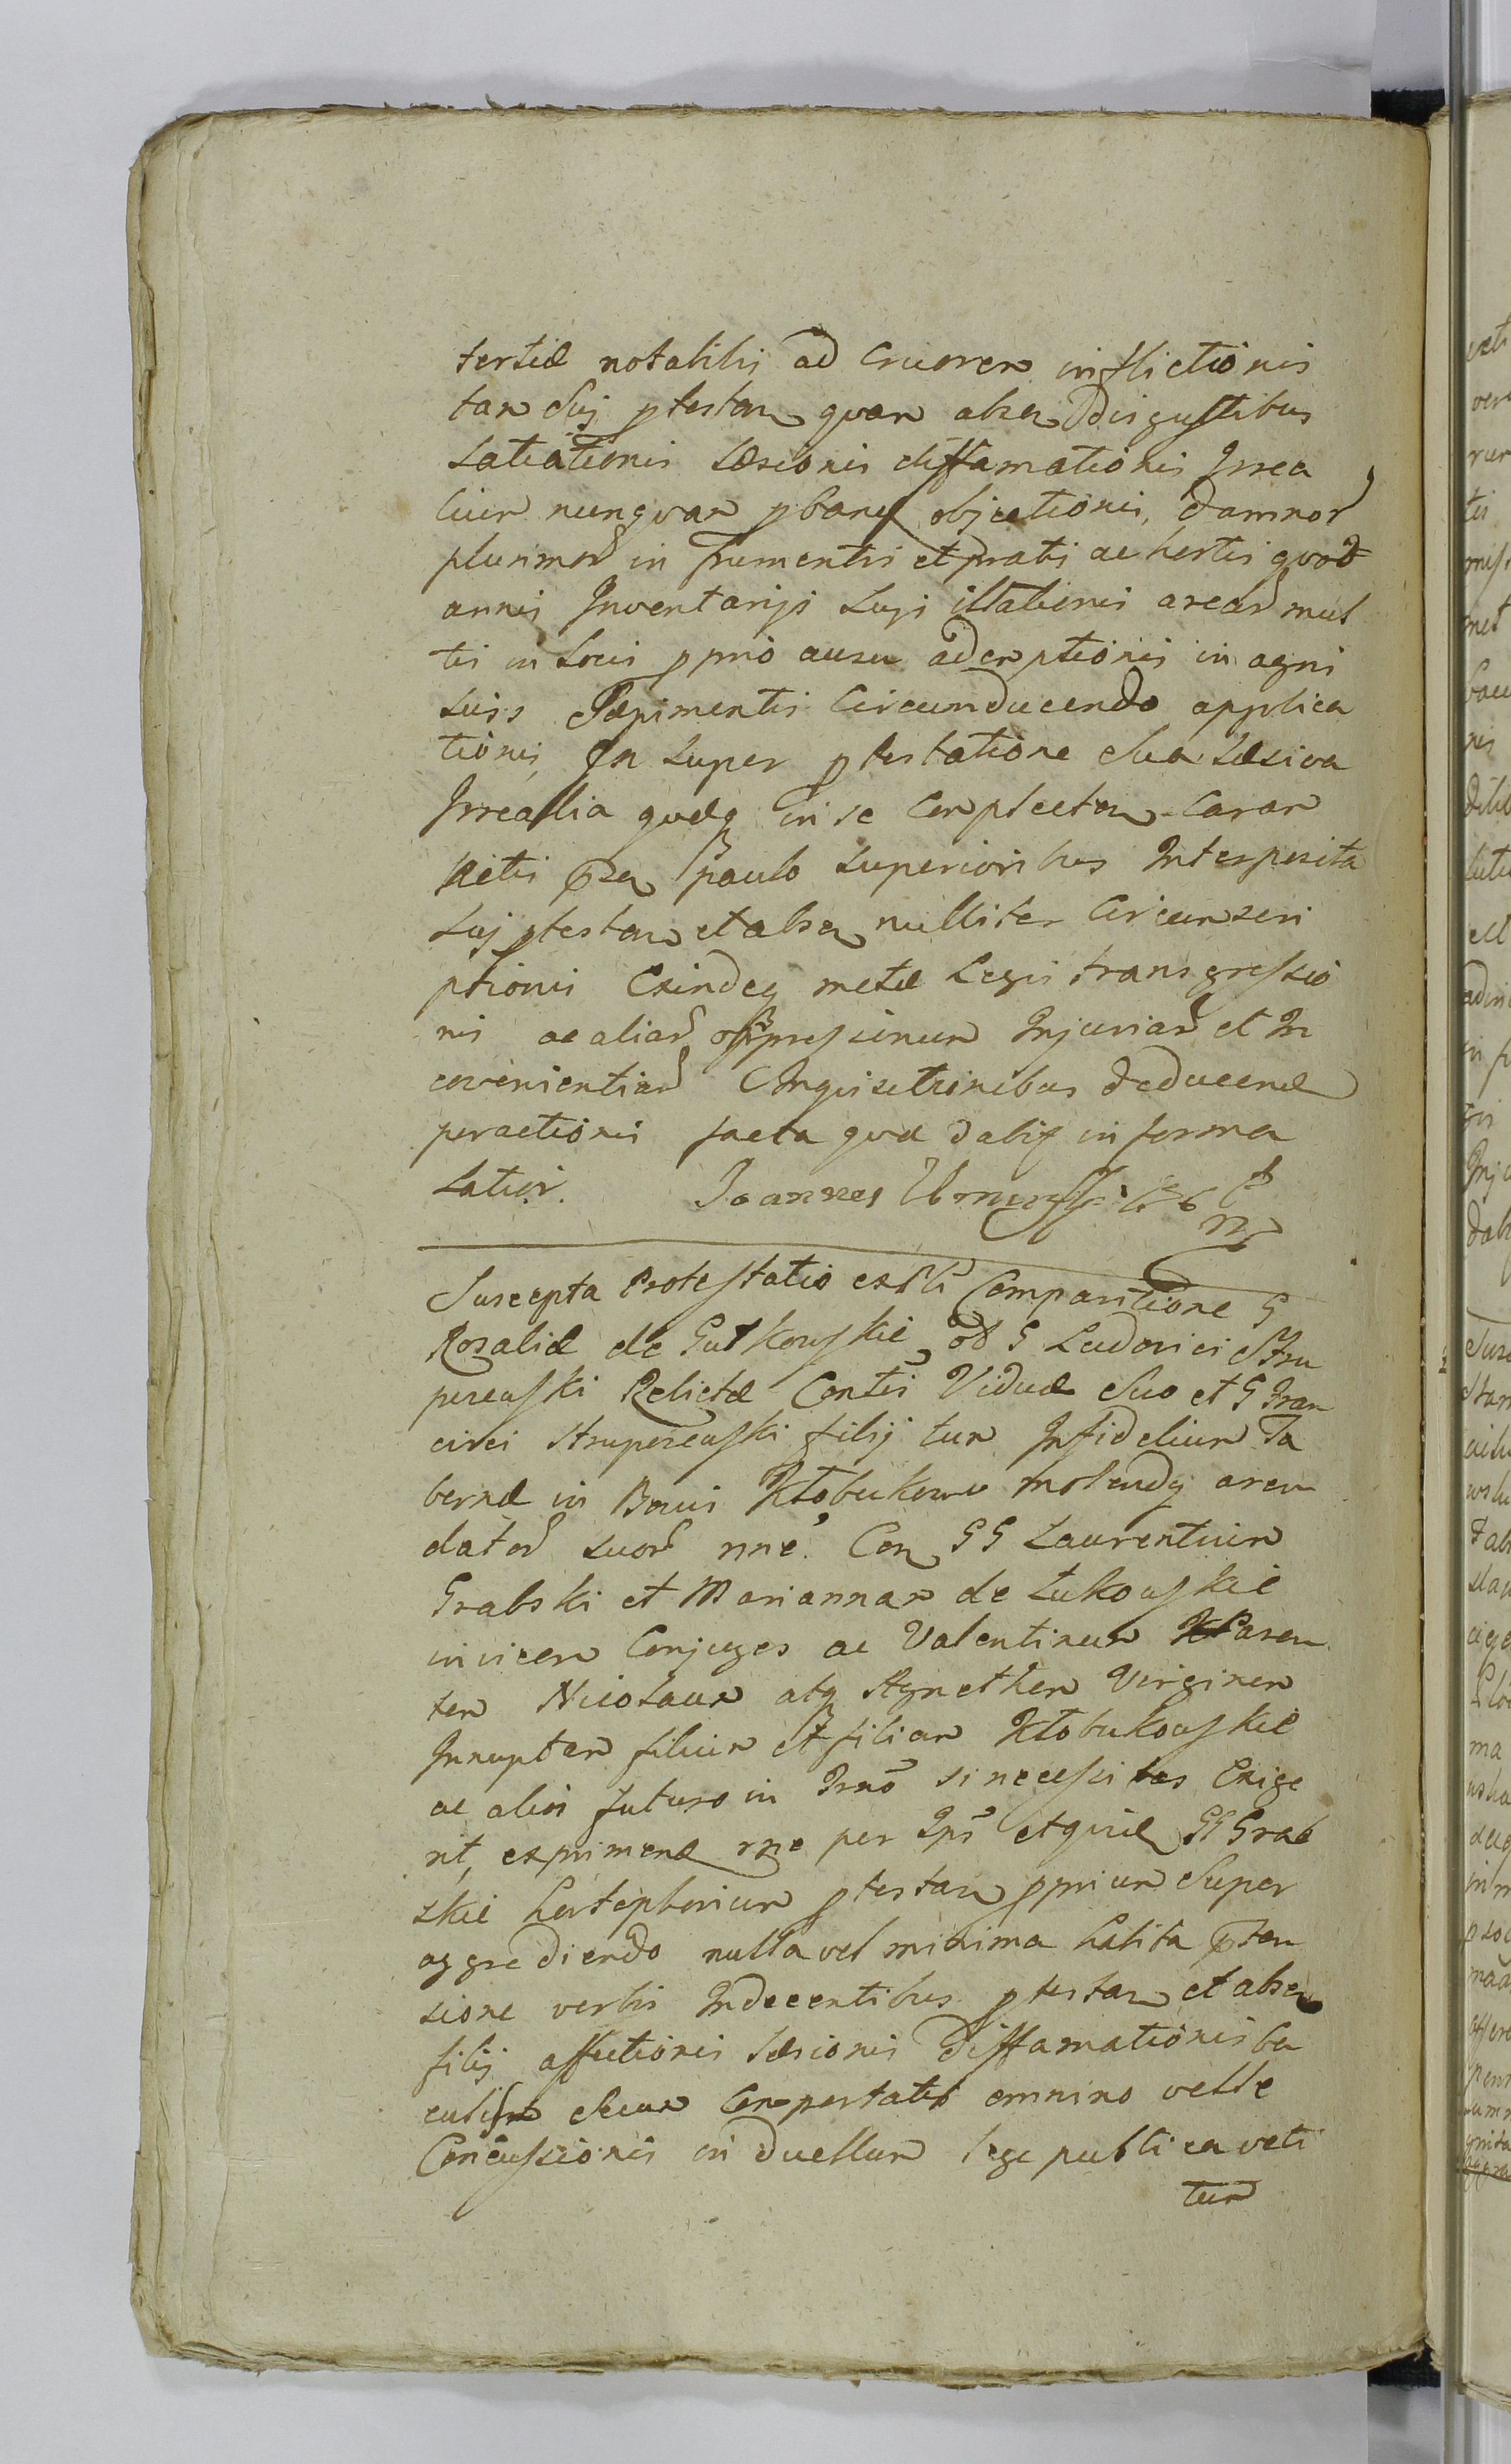 tertiæ notabilis ad Cruorem inflictionis
tam Suj ptestan quam absen Disgustibus
Satiationis Læsionis diffamationis Irrea
lium nunquam pbanď objectionis, damnoř
plurimoř in frumentis et pratis ac hortis quot
annis Inventarijs Suis illationis arearř mul
tis in Locis pprio ausu ademptionis in agris
Suis Sæpimentis Circumducendo applica
tionis, In super ptestatione Sua Læsiva
Irrealia quæq in se Complecten coram
Actis præsen paulo Superioribus Interposita
Suj ptestan et absen nulliter Circumscri
ptionis Exindeq metæ Legis transgressio
nis ac aliař oppressionum Injuriař et In
convenientiař Inquisitionibus deducenď
peractionis facta quæ dabiť in forma
Latiori. Joannes
Suscepta Protestatio ex Comparitione G
Rosaliæ de Gutkowskie, ol G Ludovici Stru
pczewski Relictæ Consortis Viduæ Suo et G Fran
cisci Strupczewski filij tum Infidelium Ta
bernæ in Bonis Kłobukowo molendq aren
datoř suoř nne. Con GG Laurentium
Grabski et Mariannam de Łukowskie
invicem Conjuges ac Valentinum Paren
tem Nicolaum atq Agnethem Virginem
Innuptam filium et filiam Kłobukowskie
ac alios futuro in Trno si necessitas Exige
rit, exprimenď rne per Ips etquidem GG Grab
skie hortephorium ptestan pprium Super
aggrediendo nulla vel minima habita præten
sione verbis Indecentibus ptestan et absen
filij affectionis Læsionis Diffamationis ba
culisq Secum Comportatis omnino velle
Concussionis in duellum lege publica veti
tum